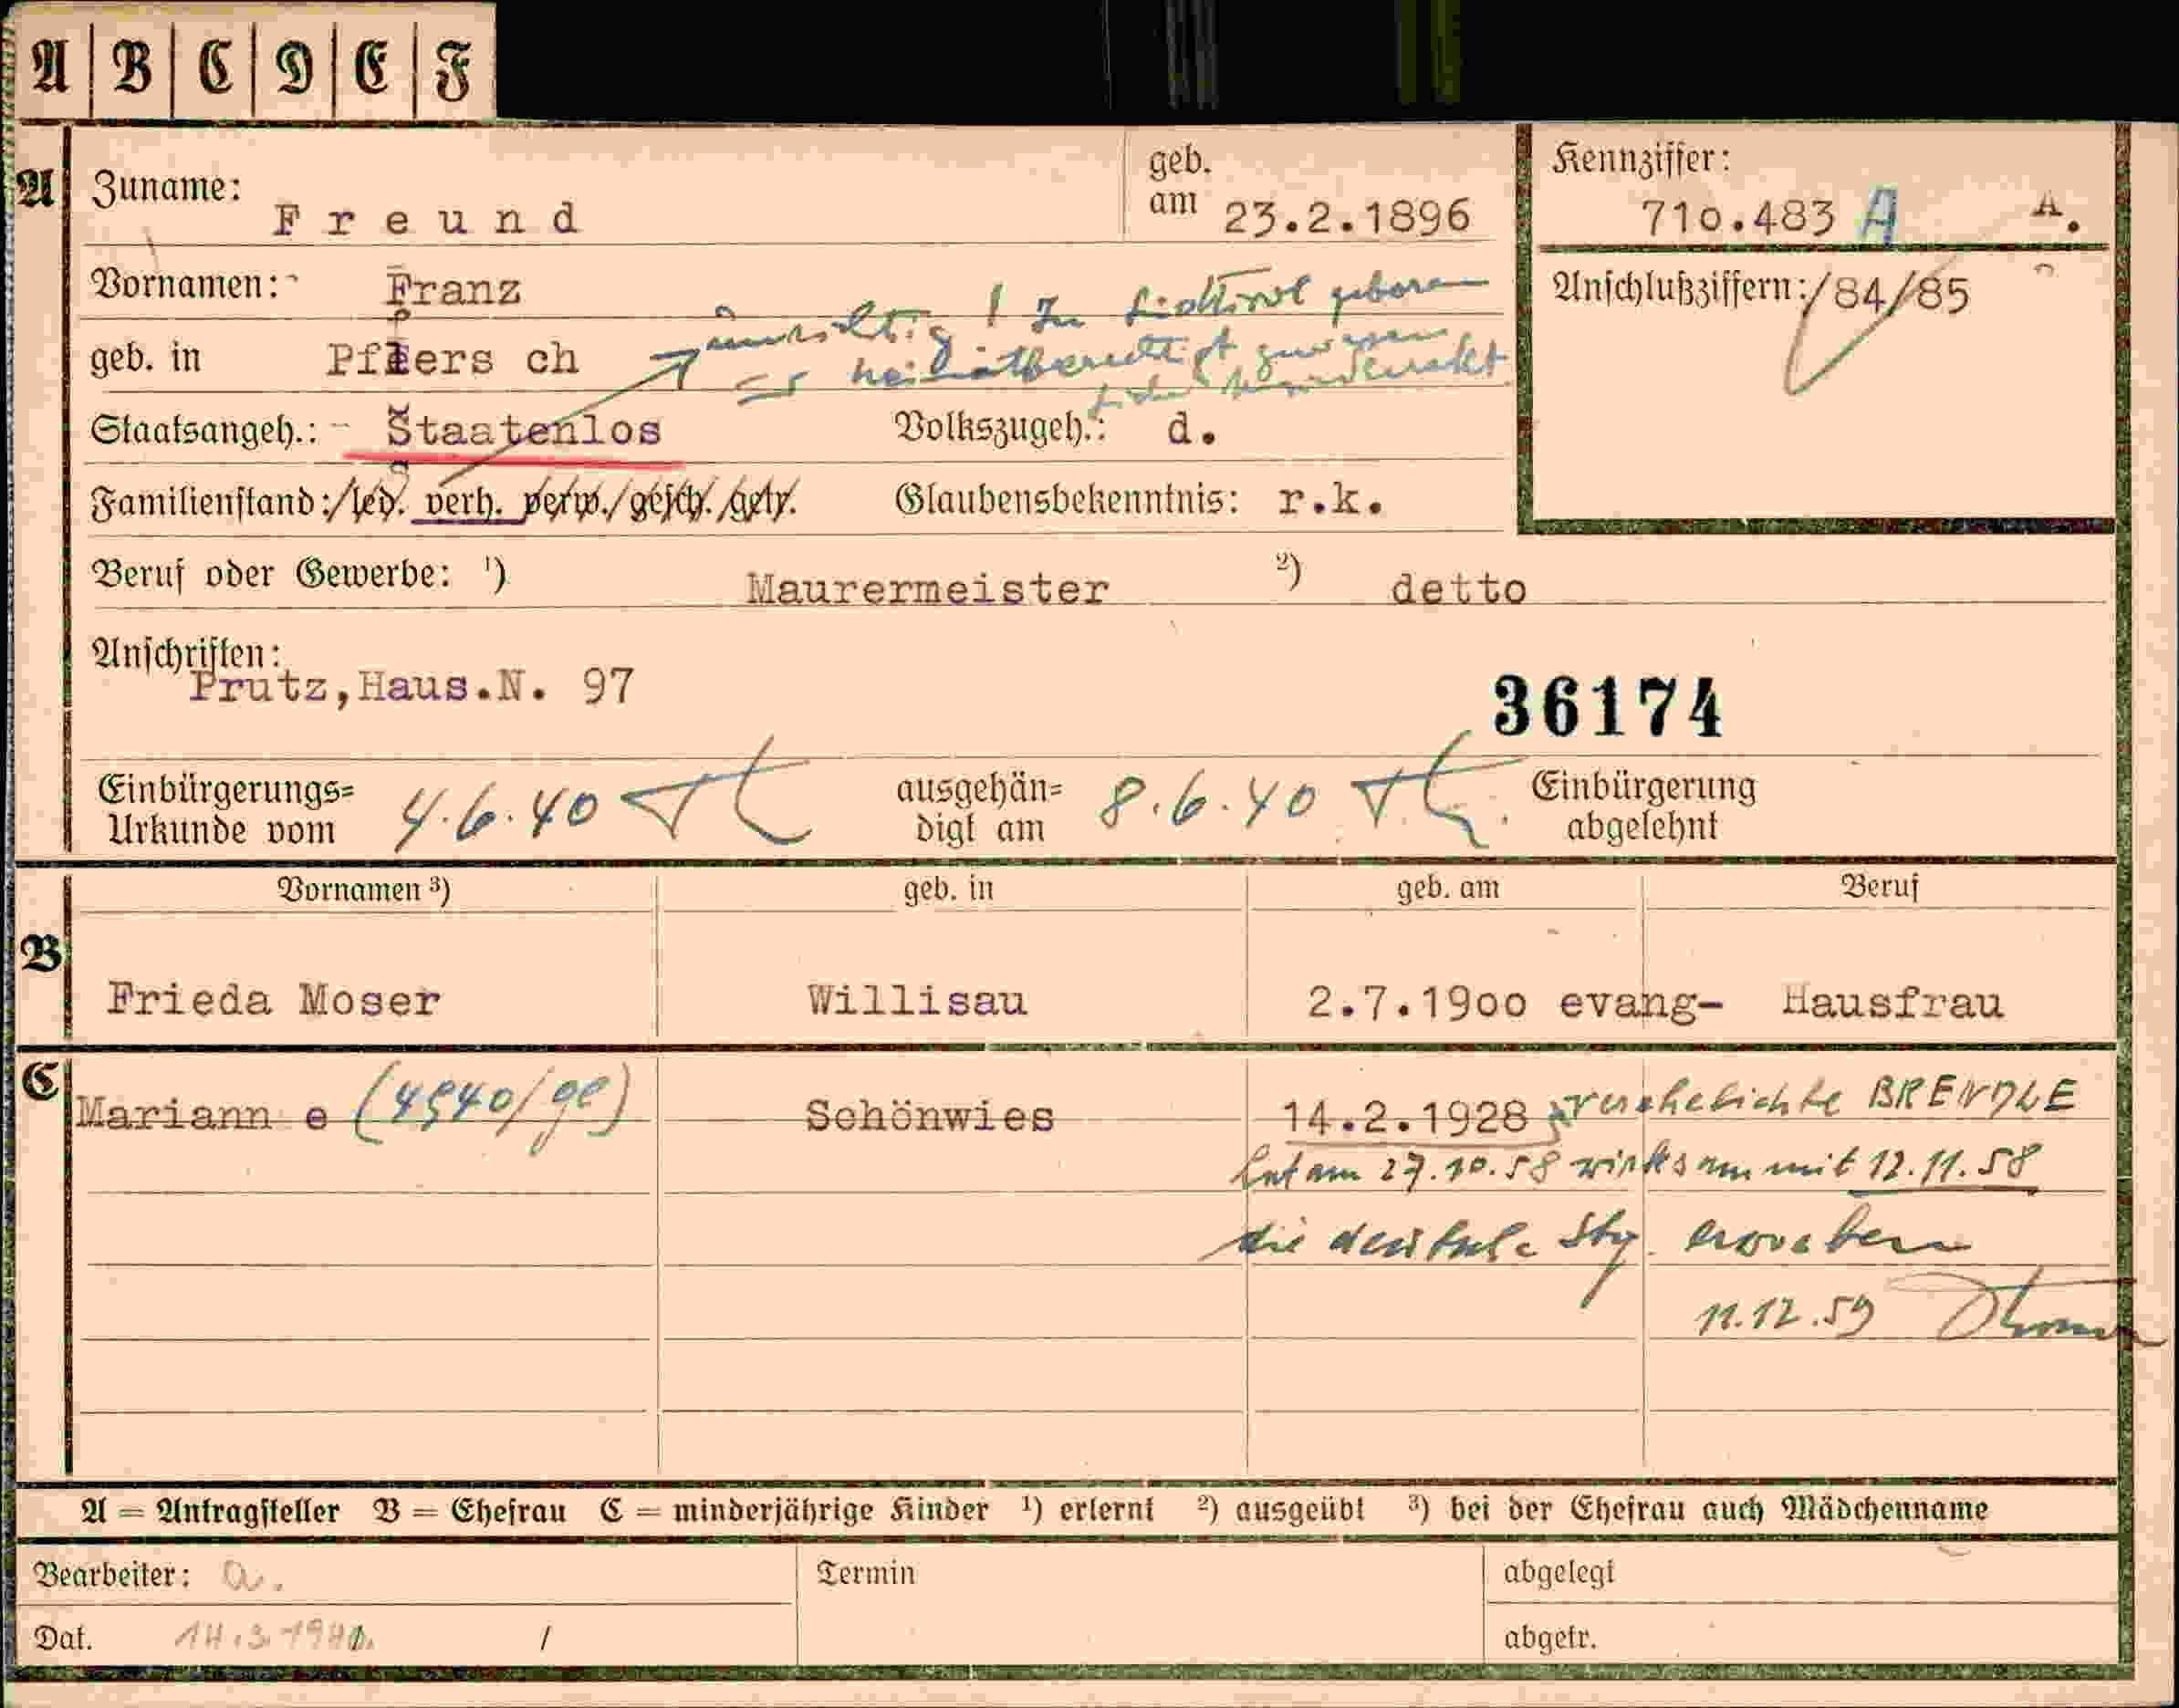 A B C D E F
A Zuname: Freund geb. am 23.2.1896 Kennziffer: 710.483 A A.
Vornamen: Franz Anschlußziffern: /84/85
! In Südtirol geboren
geb. in Pflersch
heimatberechtigt gewesen
Staatsangeh.: Staatenlos Volkszugeh.: d.
Familienstand: led. verh. verw. gesch. getr. Glaubensbekenntnis: r.k.
Beruf oder Gewerbe: ¹) Maurermeister ²) detto
Anschriften:
Prutz, Haus.N. 97
36174
Einbürgerungs= Urkunde vom 4.6.40 ausgehän= digt am 8.6.40 Einbürgerung abgelehnt
Vornamen ³) geb. in geb. am Beruf
B Frieda Moser Willisau 2.7.19oo evang- Hausfrau
C Mariann e (4540/ge) Schönwies 14.2.1928 verehelichte BRENDLE
hat am 27.10.58 wirksam mit 12.11.58
die deutsche Stg. erworben
11.12.59
A = Antragsteller B = Ehefrau C = minderjährige Kinder ¹) erlernt ²) ausgeübt ³) bei der Ehefrau auch Mädchenname
Bearbeiter: a. Termin abgelegt
Dat. 14.3.1940. / abgetr.